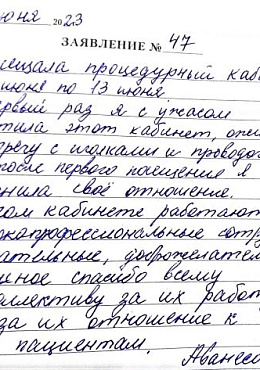 июня 2023
ЗАЯВЛЕНИЕ № 47
посещала процедурный каб
июня по 13 июня
ервый раз я с ужасом
тила этот кабинет, опе
с иголками и проводо
после первого посещения я
енила своё отношение.
ом кабинете работают
окопрофессиональные сотру
ательные, доброжелател
ное спасибо всему
оллективу за их работ
за их отношение к
пациентам.
Аванес